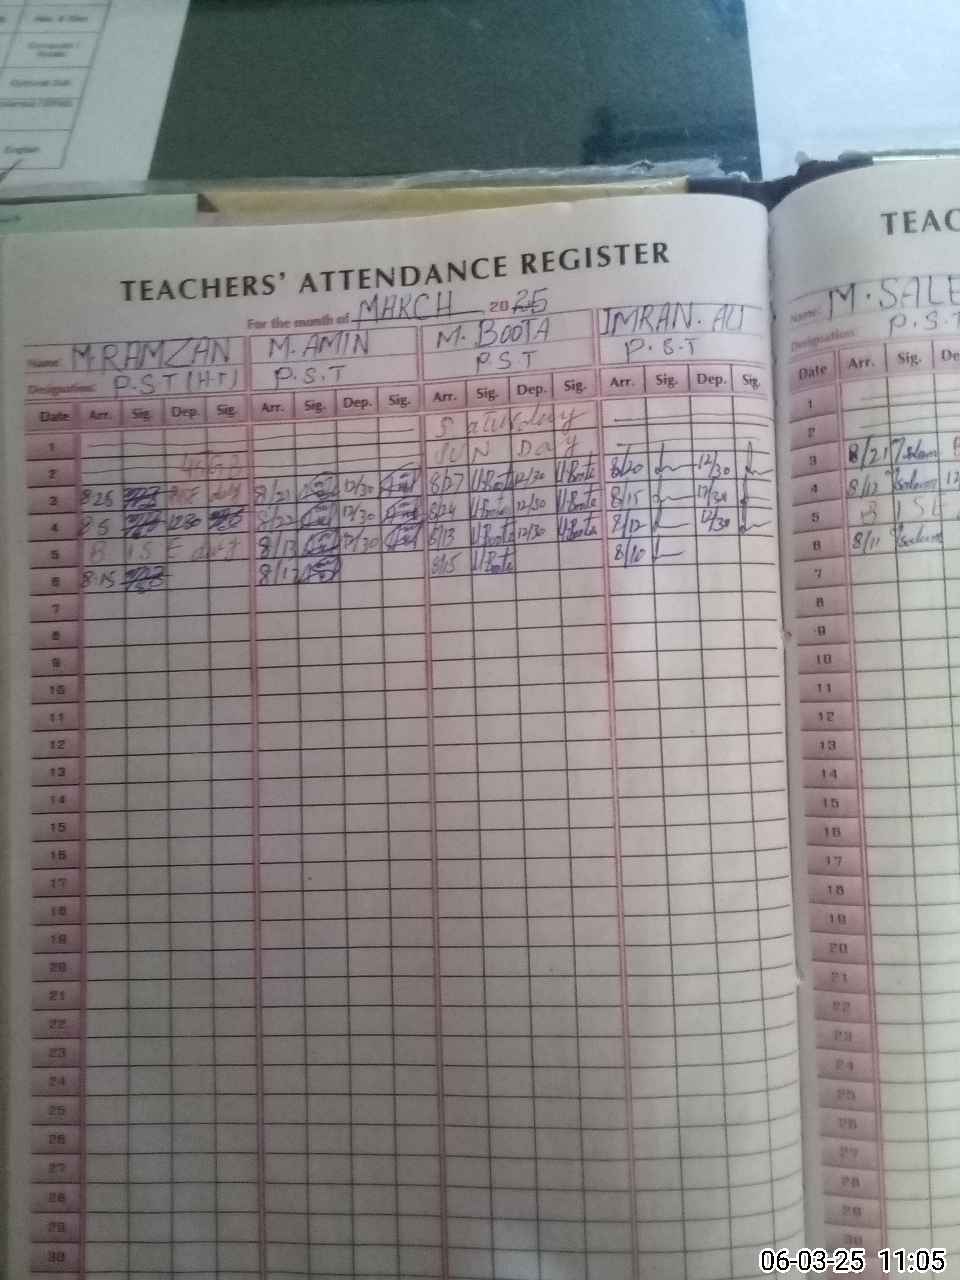 English
TEACHERS' ATTENDANCE REGISTER
For the month of MARCH 2025
Name: M.RAMZAN M. AMIN M. BOOTA IMRAN. ALI
Designation: P.S.T (H.T) P.S.T P.S.T P.S.T
Date Arr. Sig. Dep. Sig. Arr. Sig. Dep. Sig. Arr. Sig. Dep. Sig. Arr. Sig. Dep. Sig.
1 Saturday
2 SUN Day
3 8:25 8/21 12/30 8/27 M.Boota 12/30 M.Boota 8/20 12/30
4 8:5 12:30 8/22 12/30 8/24 M.Boota 12/30 M.Boota 8/15 12/30
5 B I S E 8/13 12/30 8/13 M.Boota 12/30 M.Boota 8/12 12/30
6 8:15 8/12 8/15 M.Boota 8/10
7
8
9
10
11
12
13
14
15
16
17
18
19
20
21
22
23
24
25
26
27
28
29
30
TEAC
Name: M. SALE
Designation: P.S.T
Date Arr. Sig. De
1
2
3 8/21
4 8/12
5 B I S E
6 8/11
7
8
9
10
11
12
13
14
15
16
17
18
19
20
21
22
23
24
25
26
27
28
29
30
06-03-25 11:05